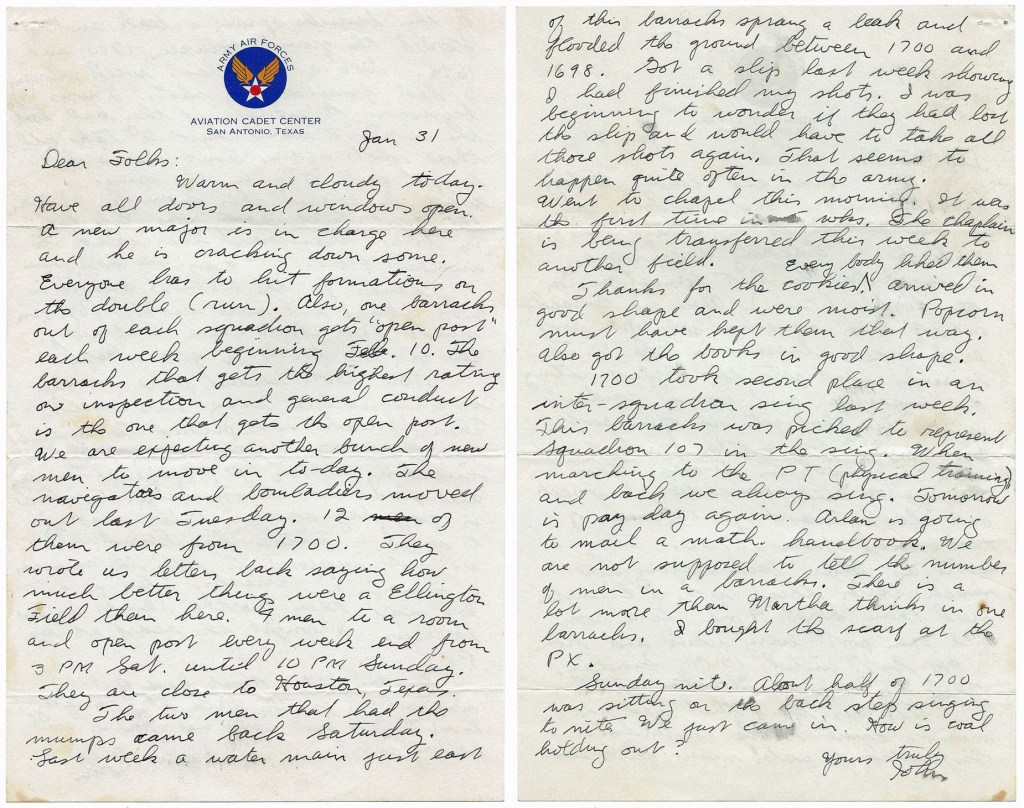 ARMY AIR FORCES
AVIATION CADET CENTER
SAN ANTONIO, TEXAS
Jan 31
Dear Folks:
Warm and cloudy today.
Have all doors and windows open.
A new major is in charge here
and he is cracking down some.
Everyone has to hit formations on
the double (run). Also, one barracks
out of each squadron gets "open post"
each week beginning Feb. 10. The
barracks that gets the highest rating
on inspection and general conduct
is the one that gets the open post.
We are expecting another bunch of new
men to move in to-day. The
navigators and bombadiers moved
out last Tuesday. 12 men of
them were from 1700. They
wrote us letters back saying how
much better things were a Ellington
Field than here. 4 men to a room
and open post every week end from
3 PM Sat. until 10 PM Sunday.
They are close to Houston, Texas.
The two men that had the
mumps came back Saturday.
Last week a water main just east
of this barracks sprang a leak and
flooded the ground between 1700 and
1698. Got a slip last week showing
I had finished my shots. I was
beginning to wonder if they had lost
the slip and would have to take all
those shots again. That seems to
happen quite often in the army.
Went to chapel this morning. It was
the first time in wks. The chaplain
is being transferred this week to
another field. Every body liked them
Thanks for the cookies. arrived in
good shape and were moist. Popcorn
must have kept them that way.
Also got the books in good shape.
1700 took second place in an
inter-squadron sing last week.
This barracks was picked to represent
Squadron 107 in the sing. When
marching to the PT (physical training)
and back we always sing. Tomorrow
is pay day again. Arlan is going
to mail a math. handbook. We
are not supposed to tell the number
of men in a barracks. There is a
lot more than Martha thinks in one
barracks. I bought the scarf at the
PX.
Sunday nite. About half of 1700
was sitting on the back step singing
to nite. We just came in. How is coal
holding out?
Yours truly
John